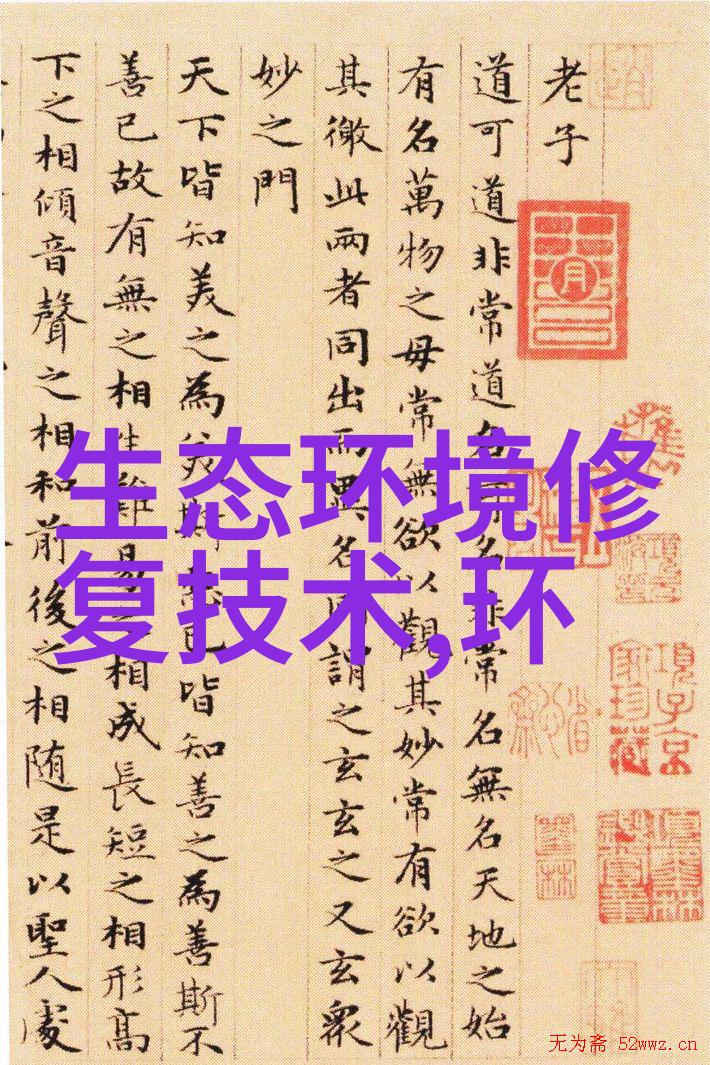 老子
道可道非常道名可名非常名無名天地之始
有名萬物之母常無欲以觀其妙常有欲以觀
其徼此兩者同出而異名同謂之玄玄之又玄衆
妙之門
天下皆知美之為美斯惡已皆知善之為善斯不
善已故有無之相生難易之相成長短之相形高
下之相傾音聲之相和前後之相随是以聖人處
生态环境修
复技术,环
項子京家珍藏
无为斋 52wwz.cn